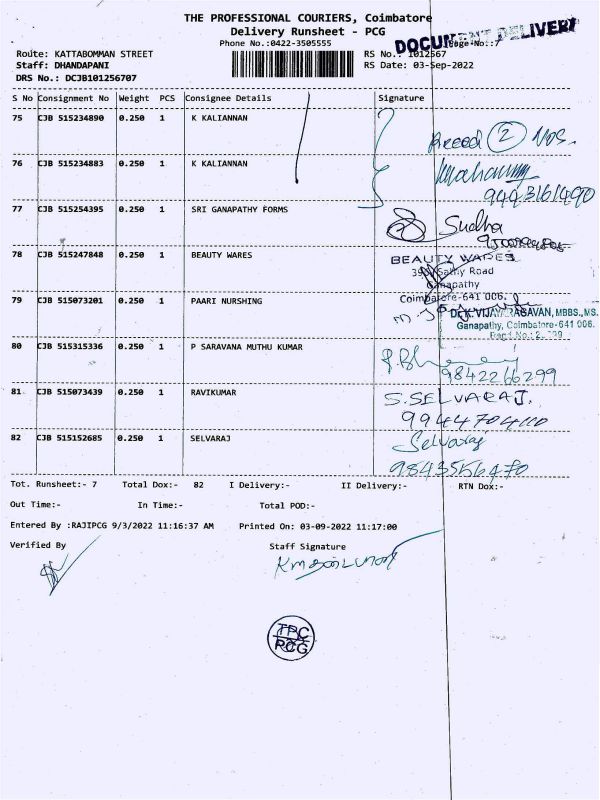 THE PROFESSIONAL COURIERS, Coimbatore
Delivery Runsheet - PCG
Phone No.:0422-3505555
DOCUMENT DELIVERY
Page No.:7
Route: KATTABOMMAN STREET
RS No.: 1012567
Staff: DHANDAPANI
RS Date: 03-Sep-2022
DRS No.: DCJB101256707
S No Consignment No Weight PCS Consignee Details Signature
75 CJB 515234890 0.250 1 K KALIANNAN
Recced 2 Nos.
76 CJB 515234883 0.250 1 K KALIANNAN
9443161490
77 CJB 515254395 0.250 1 SRI GANAPATHY FORMS
Sudha
78 CJB 515247848 0.250 1 BEAUTY WARES
BEAUTY WARES
Sathy Road
Ganapathy
Coimbatore-641 006.
79 CJB 515073201 0.250 1 PAARI NURSHING
Dr.K.VIJAYARAGAVAN, MBBS.,MS.
Ganapathy, Coimbatore-641 006.
80 CJB 515315336 0.250 1 P SARAVANA MUTHU KUMAR
9842266299
81 CJB 515073439 0.250 1 RAVIKUMAR
S.SELVARAJ.
9944704110
82 CJB 515152685 0.250 1 SELVARAJ
Selvaraj
9843556470
Tot. Runsheet:- 7 Total Dox:- 82 I Delivery:- II Delivery:- RTN Dox:-
Out Time:- In Time:- Total POD:-
Entered By :RAJIPCG 9/3/2022 11:16:37 AM Printed On: 03-09-2022 11:17:00
Verified By Staff Signature
TPC
PCG